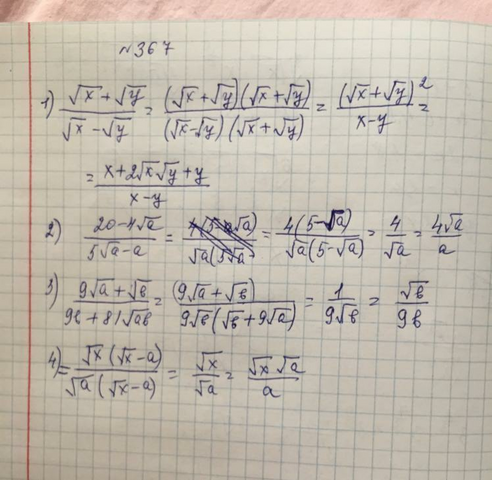 №367
1) (√x + √y)/(√x − √y) = ((√x + √y)(√x + √y))/((√x − √y)(√x + √y)) = (√x + √y)²/(x − y) =
= (x + 2√x√y + y)/(x − y)
2) (20 − 4√a)/(5√a − a) = = (4(5 − √a))/(√a(5 − √a)) = 4/√a = 4√a/a
3) (9√a + √b)/(9b + 81√ab) = (9√a + √b)/(9√b(√b + 9√a)) = 1/(9√b) = √b/(9b)
4) = (√x(√x − a))/(√a(√x − a)) = √x/√a = (√x √a)/a